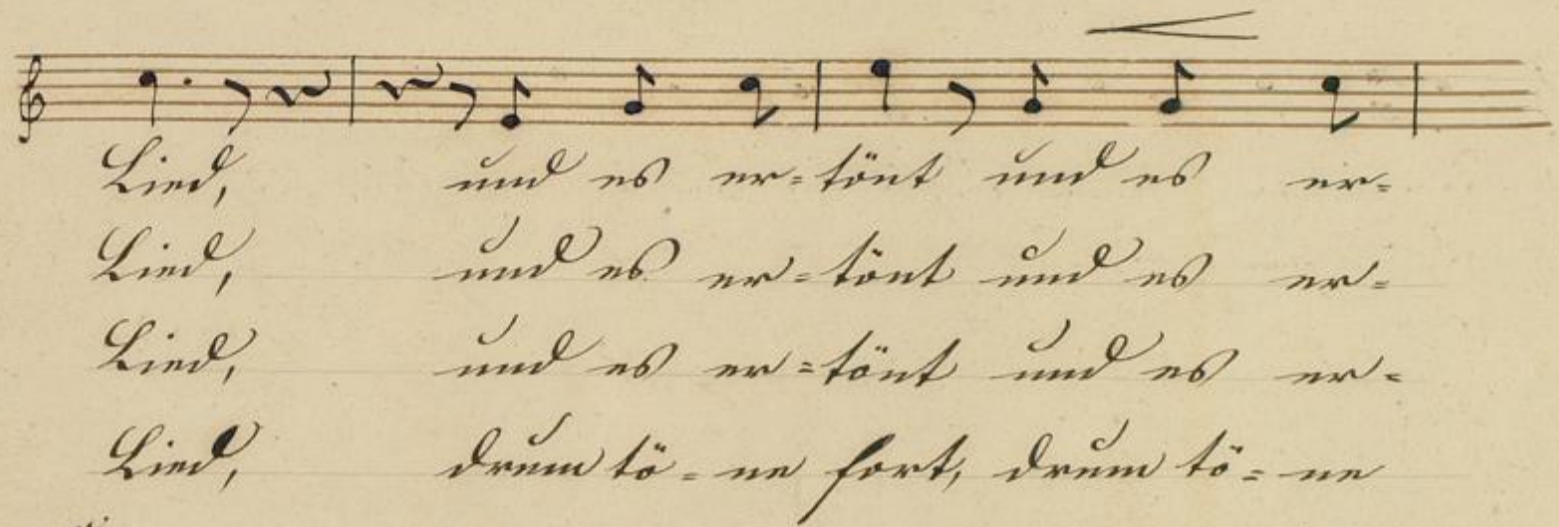 Lied, und es er= tönt und es er=
Lied, und es er= tönt und es er=
Lied, und es er= tönt und es er=
Lied, drum tö= ne fort, drum tö= ne